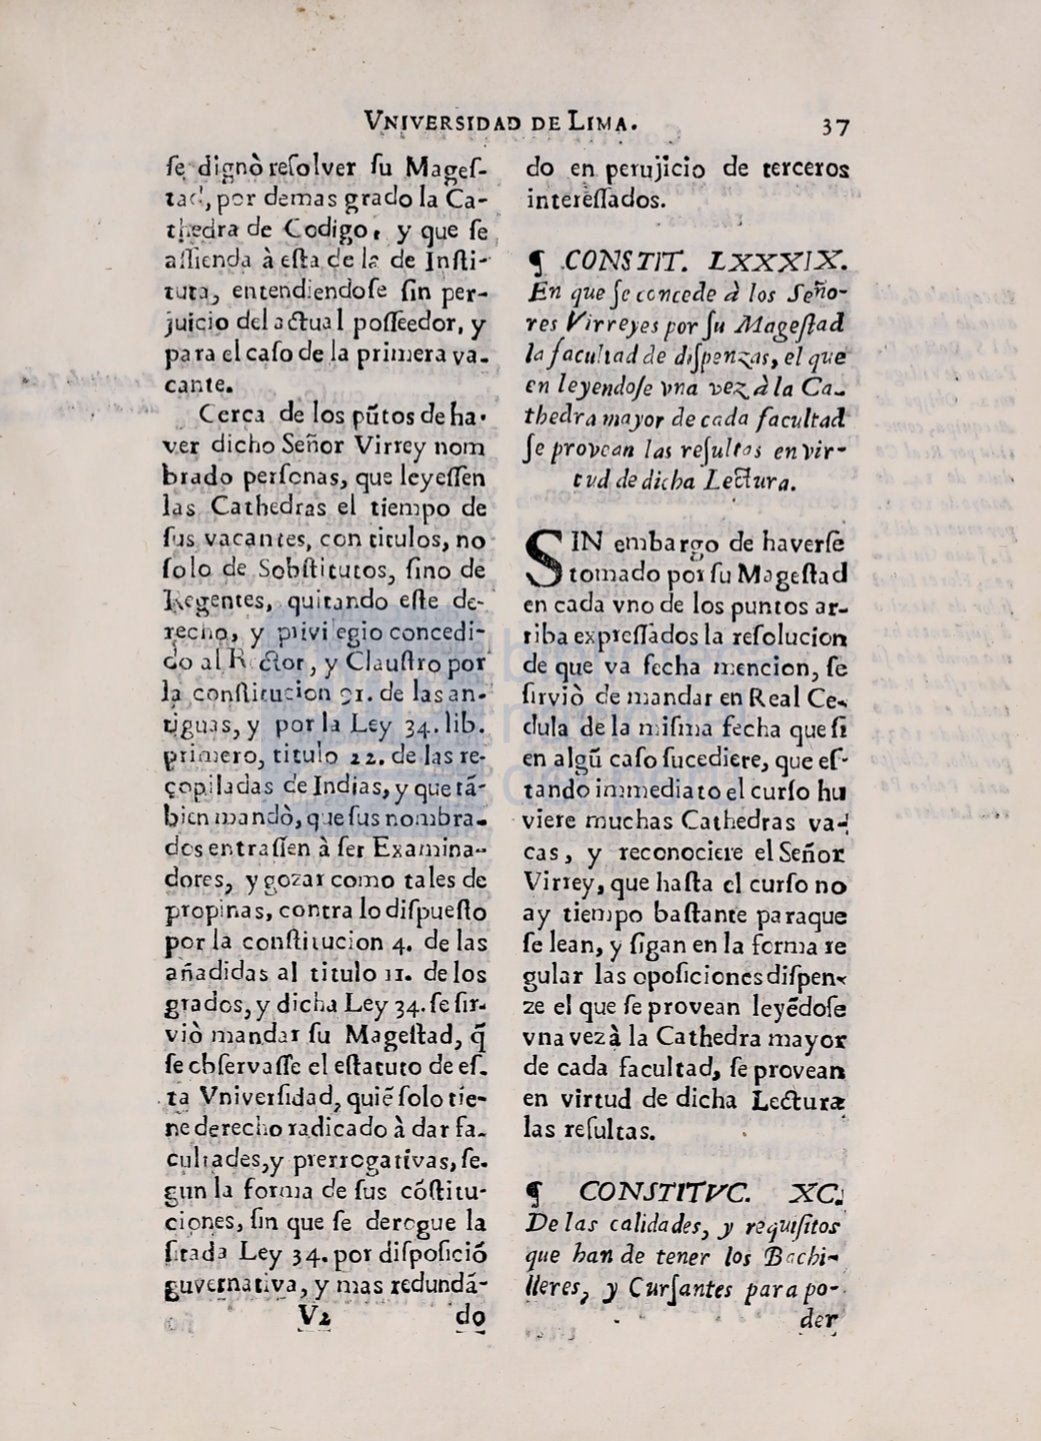 VNIVERSIDAD DE LIMA. 37
ſe dignò reſolver ſu Mageſ-
tad, por demas grado la Ca-
thedra de Codigo, y que ſe
aſſienda à eſta de la de Inſti-
tuta, entendiendoſe ſin per-
juicio del actual poſſeedor, y
para el caſo de la primera va-
cante.
Cerca de los pũtos de ha-
ver dicho Señor Virrey nom
brado perſonas, que leyeſſen
las Cathedras el tiempo de
ſus vacantes, con titulos, no
ſolo de Sobſtitutos, ſino de
Regentes, quitando eſte de-
recho, y privilegio concedi-
do al Rector, y Clauſtro por
la conſtitucion 91. de las an-
tiguas, y por la Ley 34. lib.
primero, titulo 22. de las re-
copiladas de Indias, y que tã-
bien mandò, que ſus nombra-
dos entraſſen à ſer Examina-
dores, y gozar como tales de
propinas, contra lo diſpueſto
por la conſtitucion 4. de las
añadidas al titulo 11. de los
grados, y dicha Ley 34. ſe ſir-
viò mandar ſu Mageſtad, q̃
ſe obſervaſſe el eſtatuto de eſ-
ta Vniverſidad, quiẽ ſolo tie-
ne derecho radicado à dar fa-
cultades, y prerrogativas, ſe-
gun la forma de ſus cõſtitu-
ciones, ſin que ſe derogue la
ſitada Ley 34. por diſpoſiciõ
guvernativa, y mas redundã-
V2 do
do en perujicio de terceros
intereſſados.
¶ CONSTIT. LXXXIX.
En que ſe concede à los Seño-
res Virreyes por ſu Mageſtad
la facultad de diſpenzas, el que
en leyendoſe vna vez à la Ca-
thedra mayor de cada facultad
ſe provean las reſultas en vir-
tud de dicha Lectura.
SIN embargo de haverſe
tomado por ſu Mageſtad
en cada vno de los puntos ar-
riba expreſſados la reſolucion
de que va fecha mencion, ſe
ſirviò de mandar en Real Ce-
dula de la miſma fecha que ſi
en algũ caſo ſucediere, que eſ-
tando immediato el curſo hu
viere muchas Cathedras va-
cas, y reconociere el Señor
Virrey, que haſta el curſo no
ay tiempo baſtante paraque
ſe lean, y ſigan en la forma re
gular las opoſiciones diſpen-
ze el que ſe provean leyẽdoſe
vna vez à la Cathedra mayor
de cada facultad, ſe provean
en virtud de dicha Lectura
las reſultas.
¶ CONSTITVC. XC.
De las calidades, y requiſitos
que han de tener los Bachi-
lleres, y Curſantes para po-
der